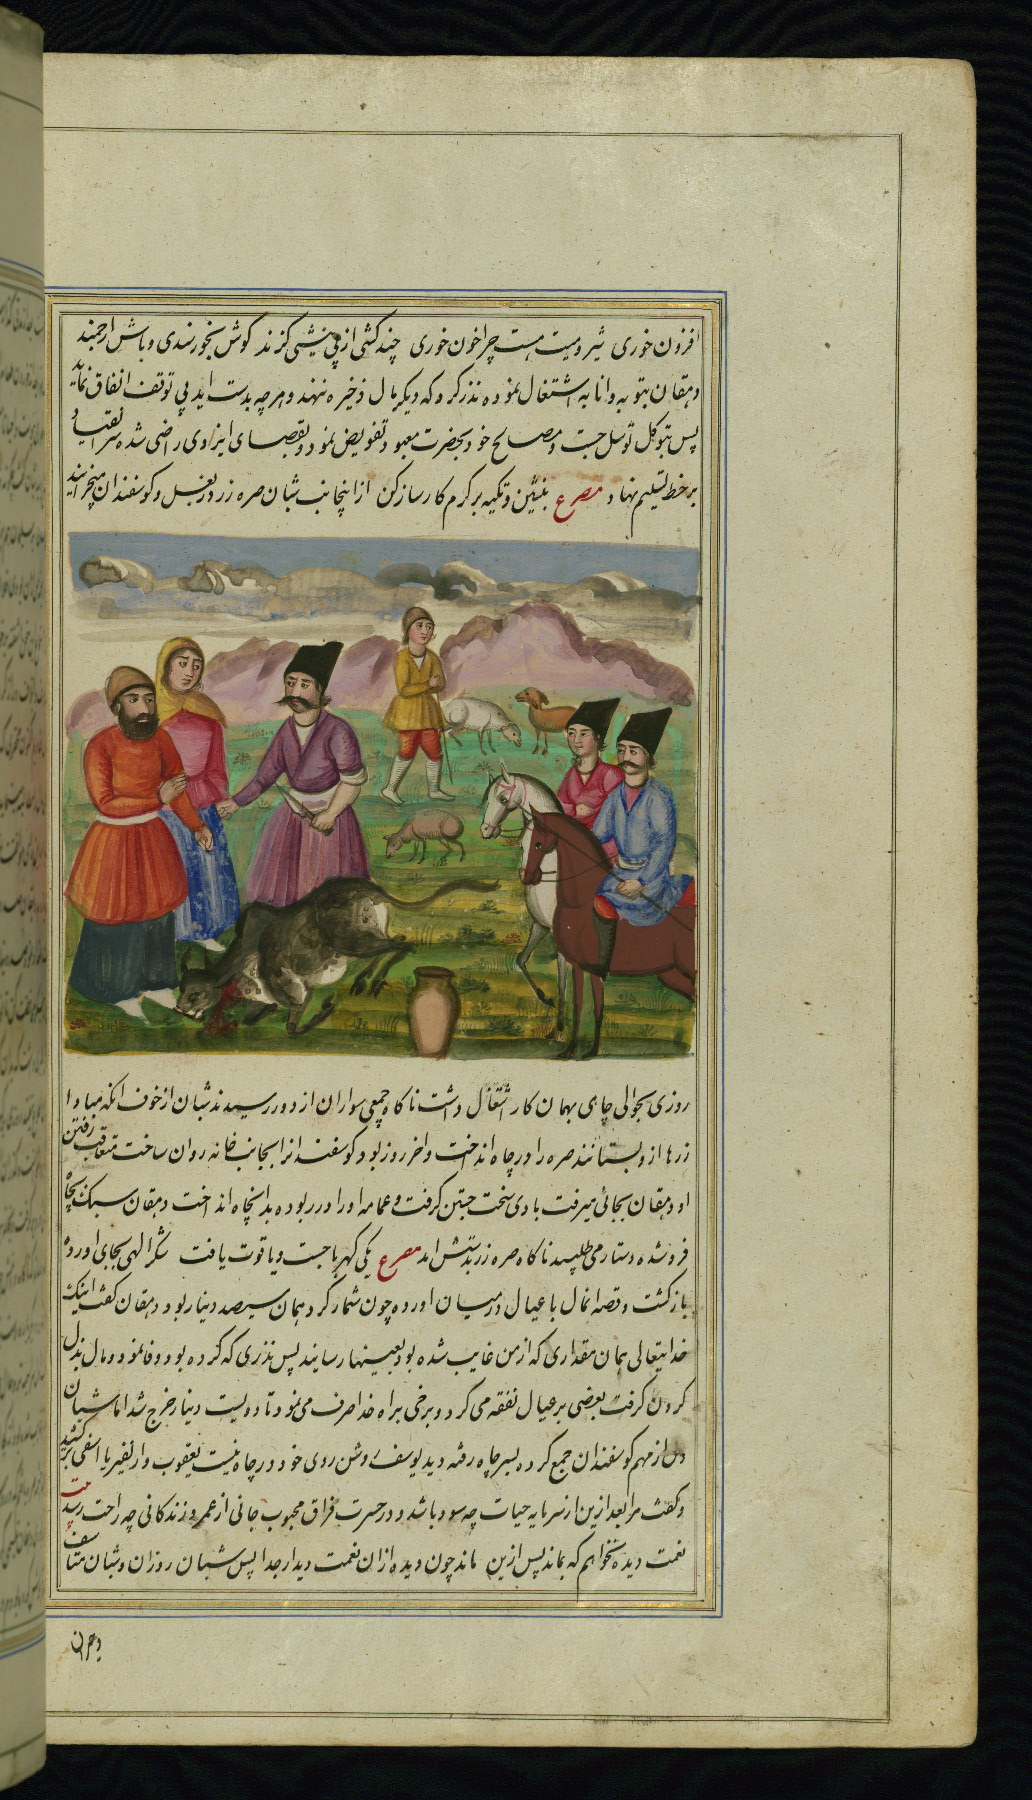 افزون خوری ثیرومیت هست چرا خون خوری چند کشی از پی بیشی گزند گوش بخورسندی و باش ارجمند
دهقان بتوبه و انابه اشتغال نموده نذر کرد که دیگر مال ذخیره ننهد و هرچه بدست اید بی توقف انفاق نماید
پس بتوکل توسل جست و مصالح خود بحضرت معبود تفویض نمود و بقضای ایزدی راضی شده سر انقیاد
بر خط تسلیم نهاد مصرع بنشین و تکیه بر کرم کارساز کن از اینجانب شبان صره زر در بغل و کوسفندان میچرانید
روزی بحوالی چاهی بهمان کار اشتغال داشت ناکاه جمعی سواران از دور رسیدند شبان از خوف انکه مبادا
زرها از وبستانند صره را در چاه انداخت و اخر روز بود کوسفندانرا بجانب خانه روان ساخت متعاقب رفتن
او دهقان بجائی میرفت بادی سخت جستن کرفت و عمامه او را در ربوده بدانچاه انداخت دهقان سبک بچاه
فروشده دستار می طلبید ناکاه صره زر بدستش امد مصرع یکی کهربا جست و یاقوت یافت شکر الهی بجای اورده
بازکشت و قصه انمال با عیال در میان اورده چون شمار کرد همان سیصد دینار بود دهقان کفت اینک
خدایتعالی همان مقداری که از من غایب شده بود بعینها رسانید پس نذری که کرده بود وفا نمود و مال بذل
کردن کرفت بعضی بر عیال نفقه می کرد و برخی براه خدا صرف می نمود تا دویست دینار خرج شد اما شبان
دل از مهم کوسفندان جمع کرده بسر چاه رفته دید یوسف روشن روی خود در چاه نیست یعقوب وار نفیر یا اسفی برکشید
و کفت مرا بعد ازین از سرمایه حیات چه سود باشد و در حسرت فراق محبوب جانی از عمر و زندکانی چه راحت رسد بیت
نعمت دیده نخواهم که بماند پس ازین مانده چون دیده ازان نعمت دیدار جدا پس شبان روزان و شبان متاسف
و حیران